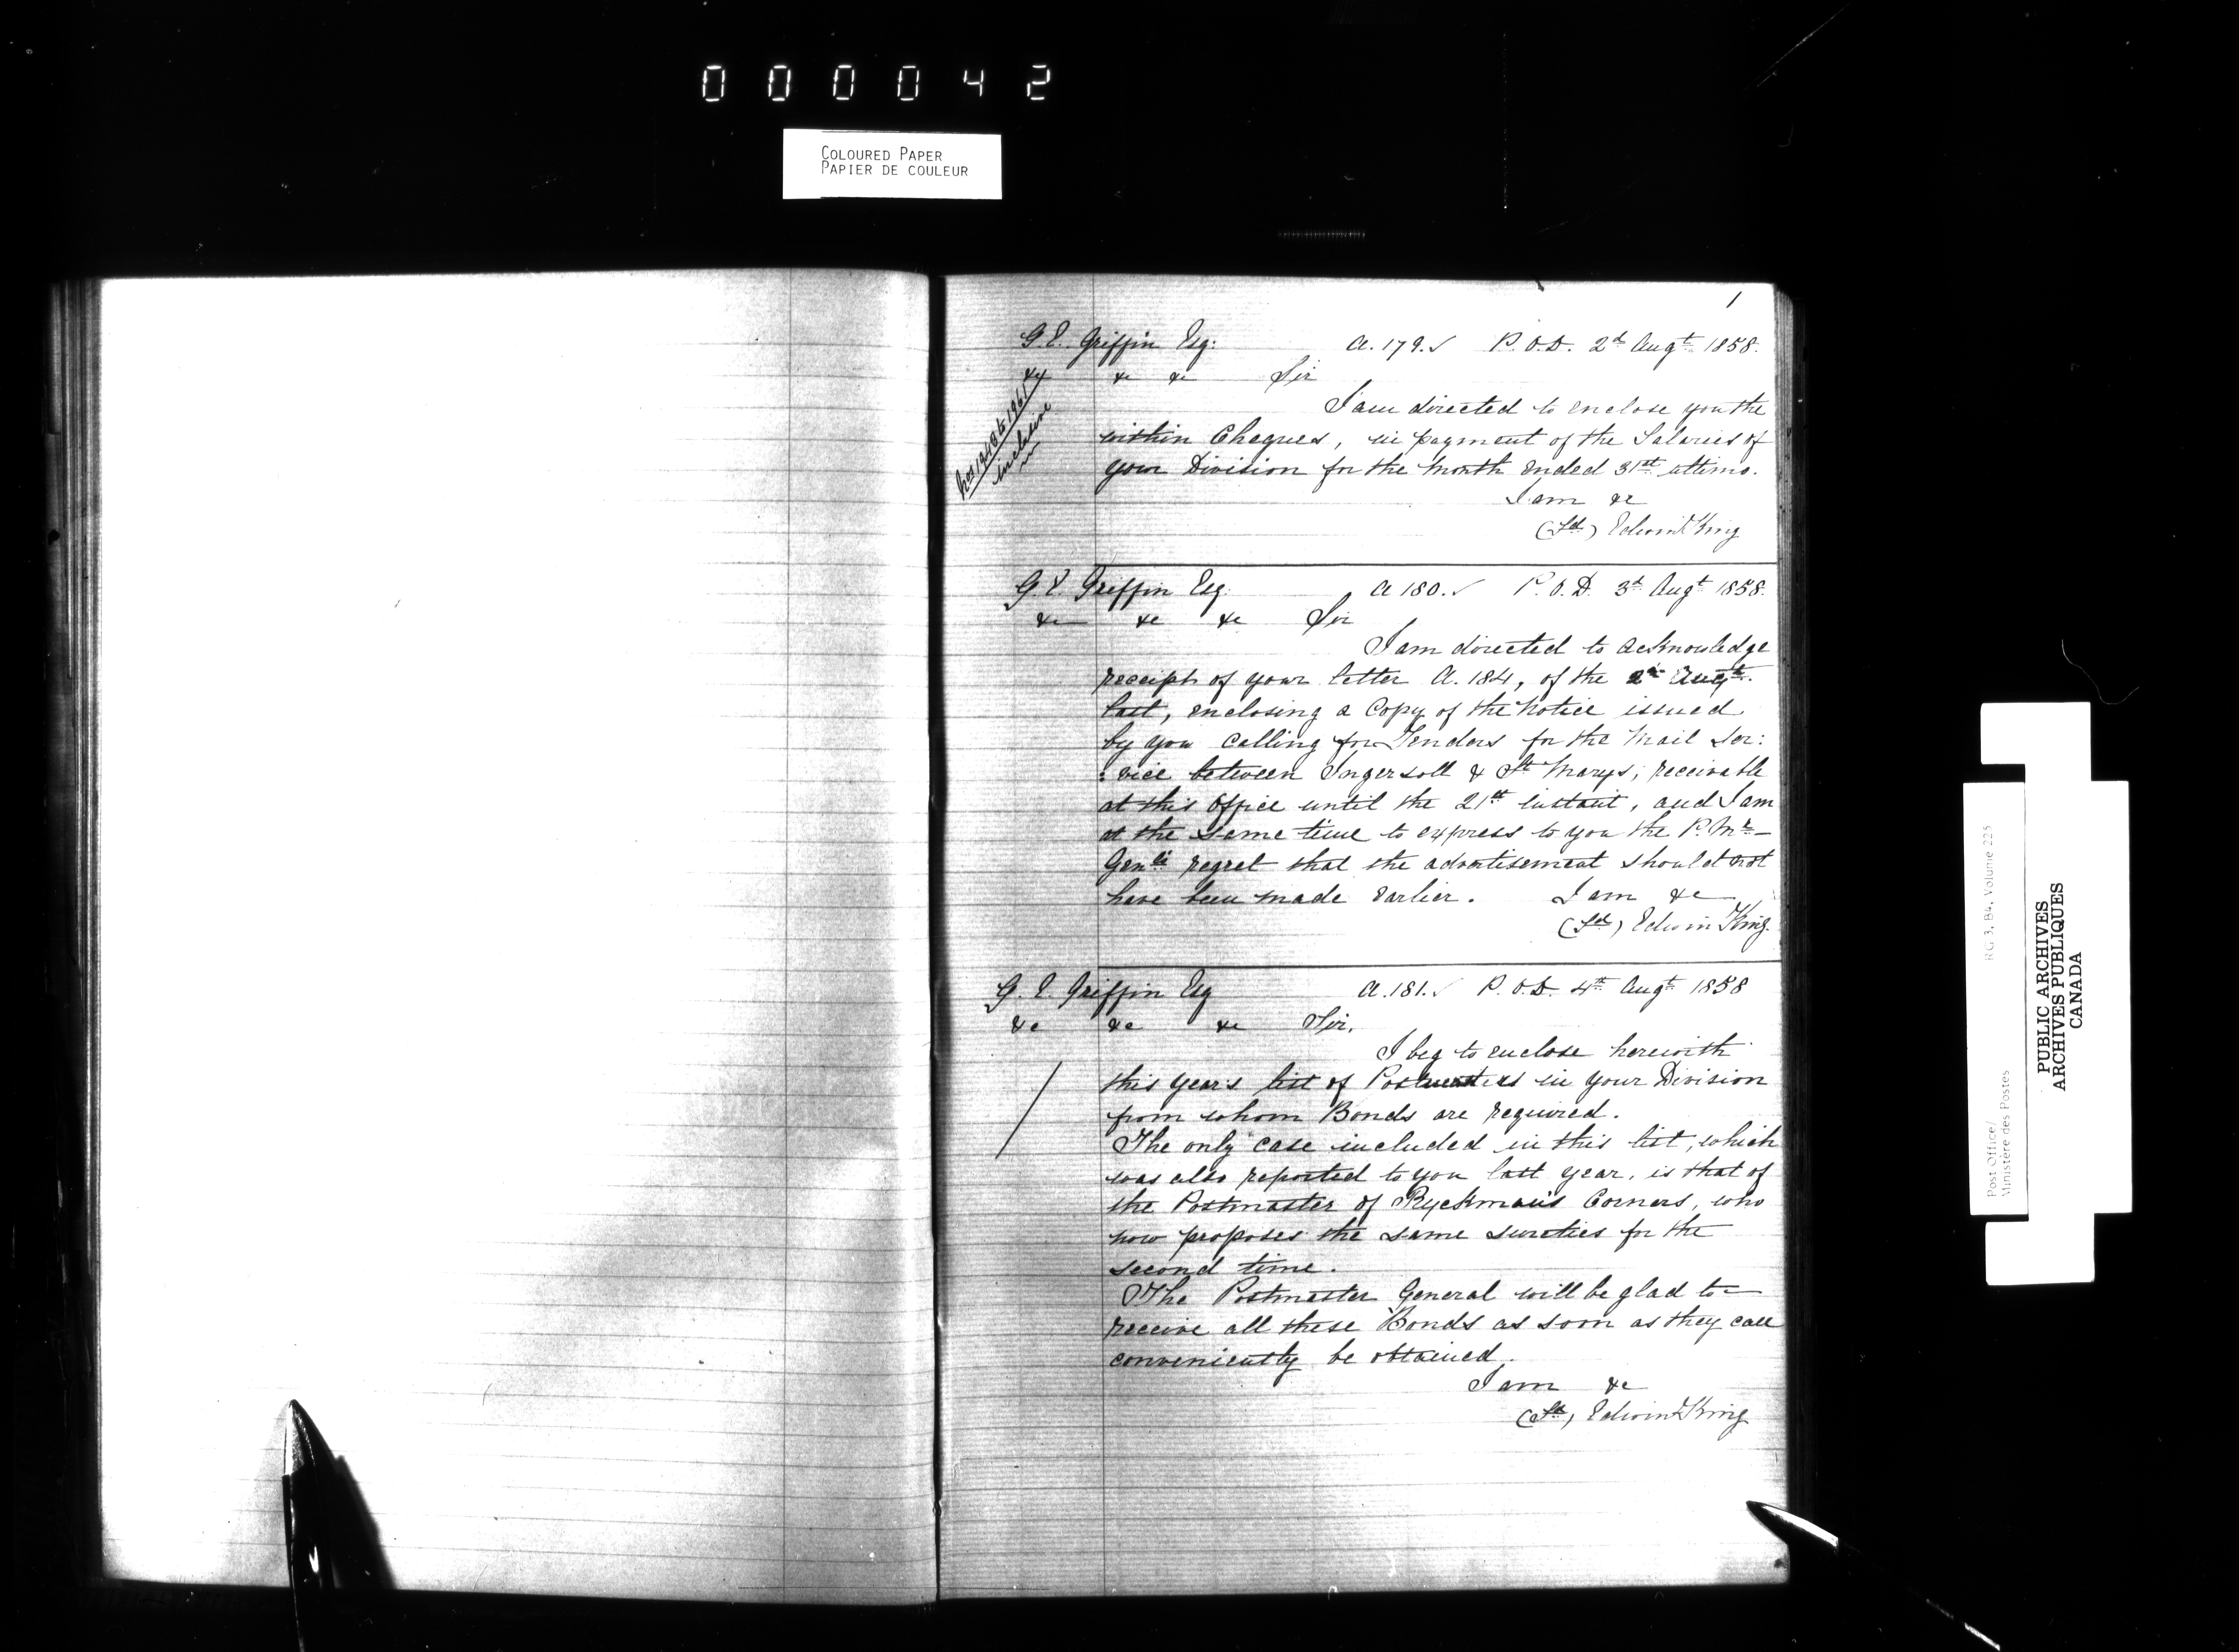 000042
COLOURED PAPER
PAPIER DE COULEUR
1
G.E. Griffin Esq: A.179.✓ P.O.D. 2d Augt 1858.
&c &c &c Sir
Nos 1940 to 1961
inclusive
I am directed to enclose you the
within Cheques, in payment of the Salaries of
your Division for the Month ended 31st ultimo.
I am &c
(Sd) Edwin King
G.E. Griffin Esq. A 180.✓ P.O.D. 3d Augt 1858.
&c &c &c Sir
I am directed to acknowledge
receipt of your letter A. 184, of the 2d Augt.
last, enclosing a Copy of the Notice issued
by you calling for Tenders for the Mail Ser:
:vice between Ingersoll & St Marys, receivable
at this Office until the 21st instant, and I am
at the same time to express to you the P. Mr
Genls regret that the advertisement should not
have been made earlier. I am &c
(Sd) Edwin King.
G. E. Griffin Esq A.181.✓ P.O.D. 4th Augt 1858
&c &c &c Sir,
I beg to enclose herewith
this year's list of Postmasters in your Division
from whom Bonds are required.
The only case included in this list, which
was also reported to you last year, is that of
the Postmaster of Ryckman's Corners, who
now proposes the same sureties for the
second time.
The Postmaster General will be glad to
receive all these Bonds as soon as they can
conveniently be obtained.
I am &c
(Sd) Edwin King
Post Office/
Ministère des Postes
RG 3, B4, Volume 225
PUBLIC ARCHIVES
ARCHIVES PUBLIQUES
CANADA